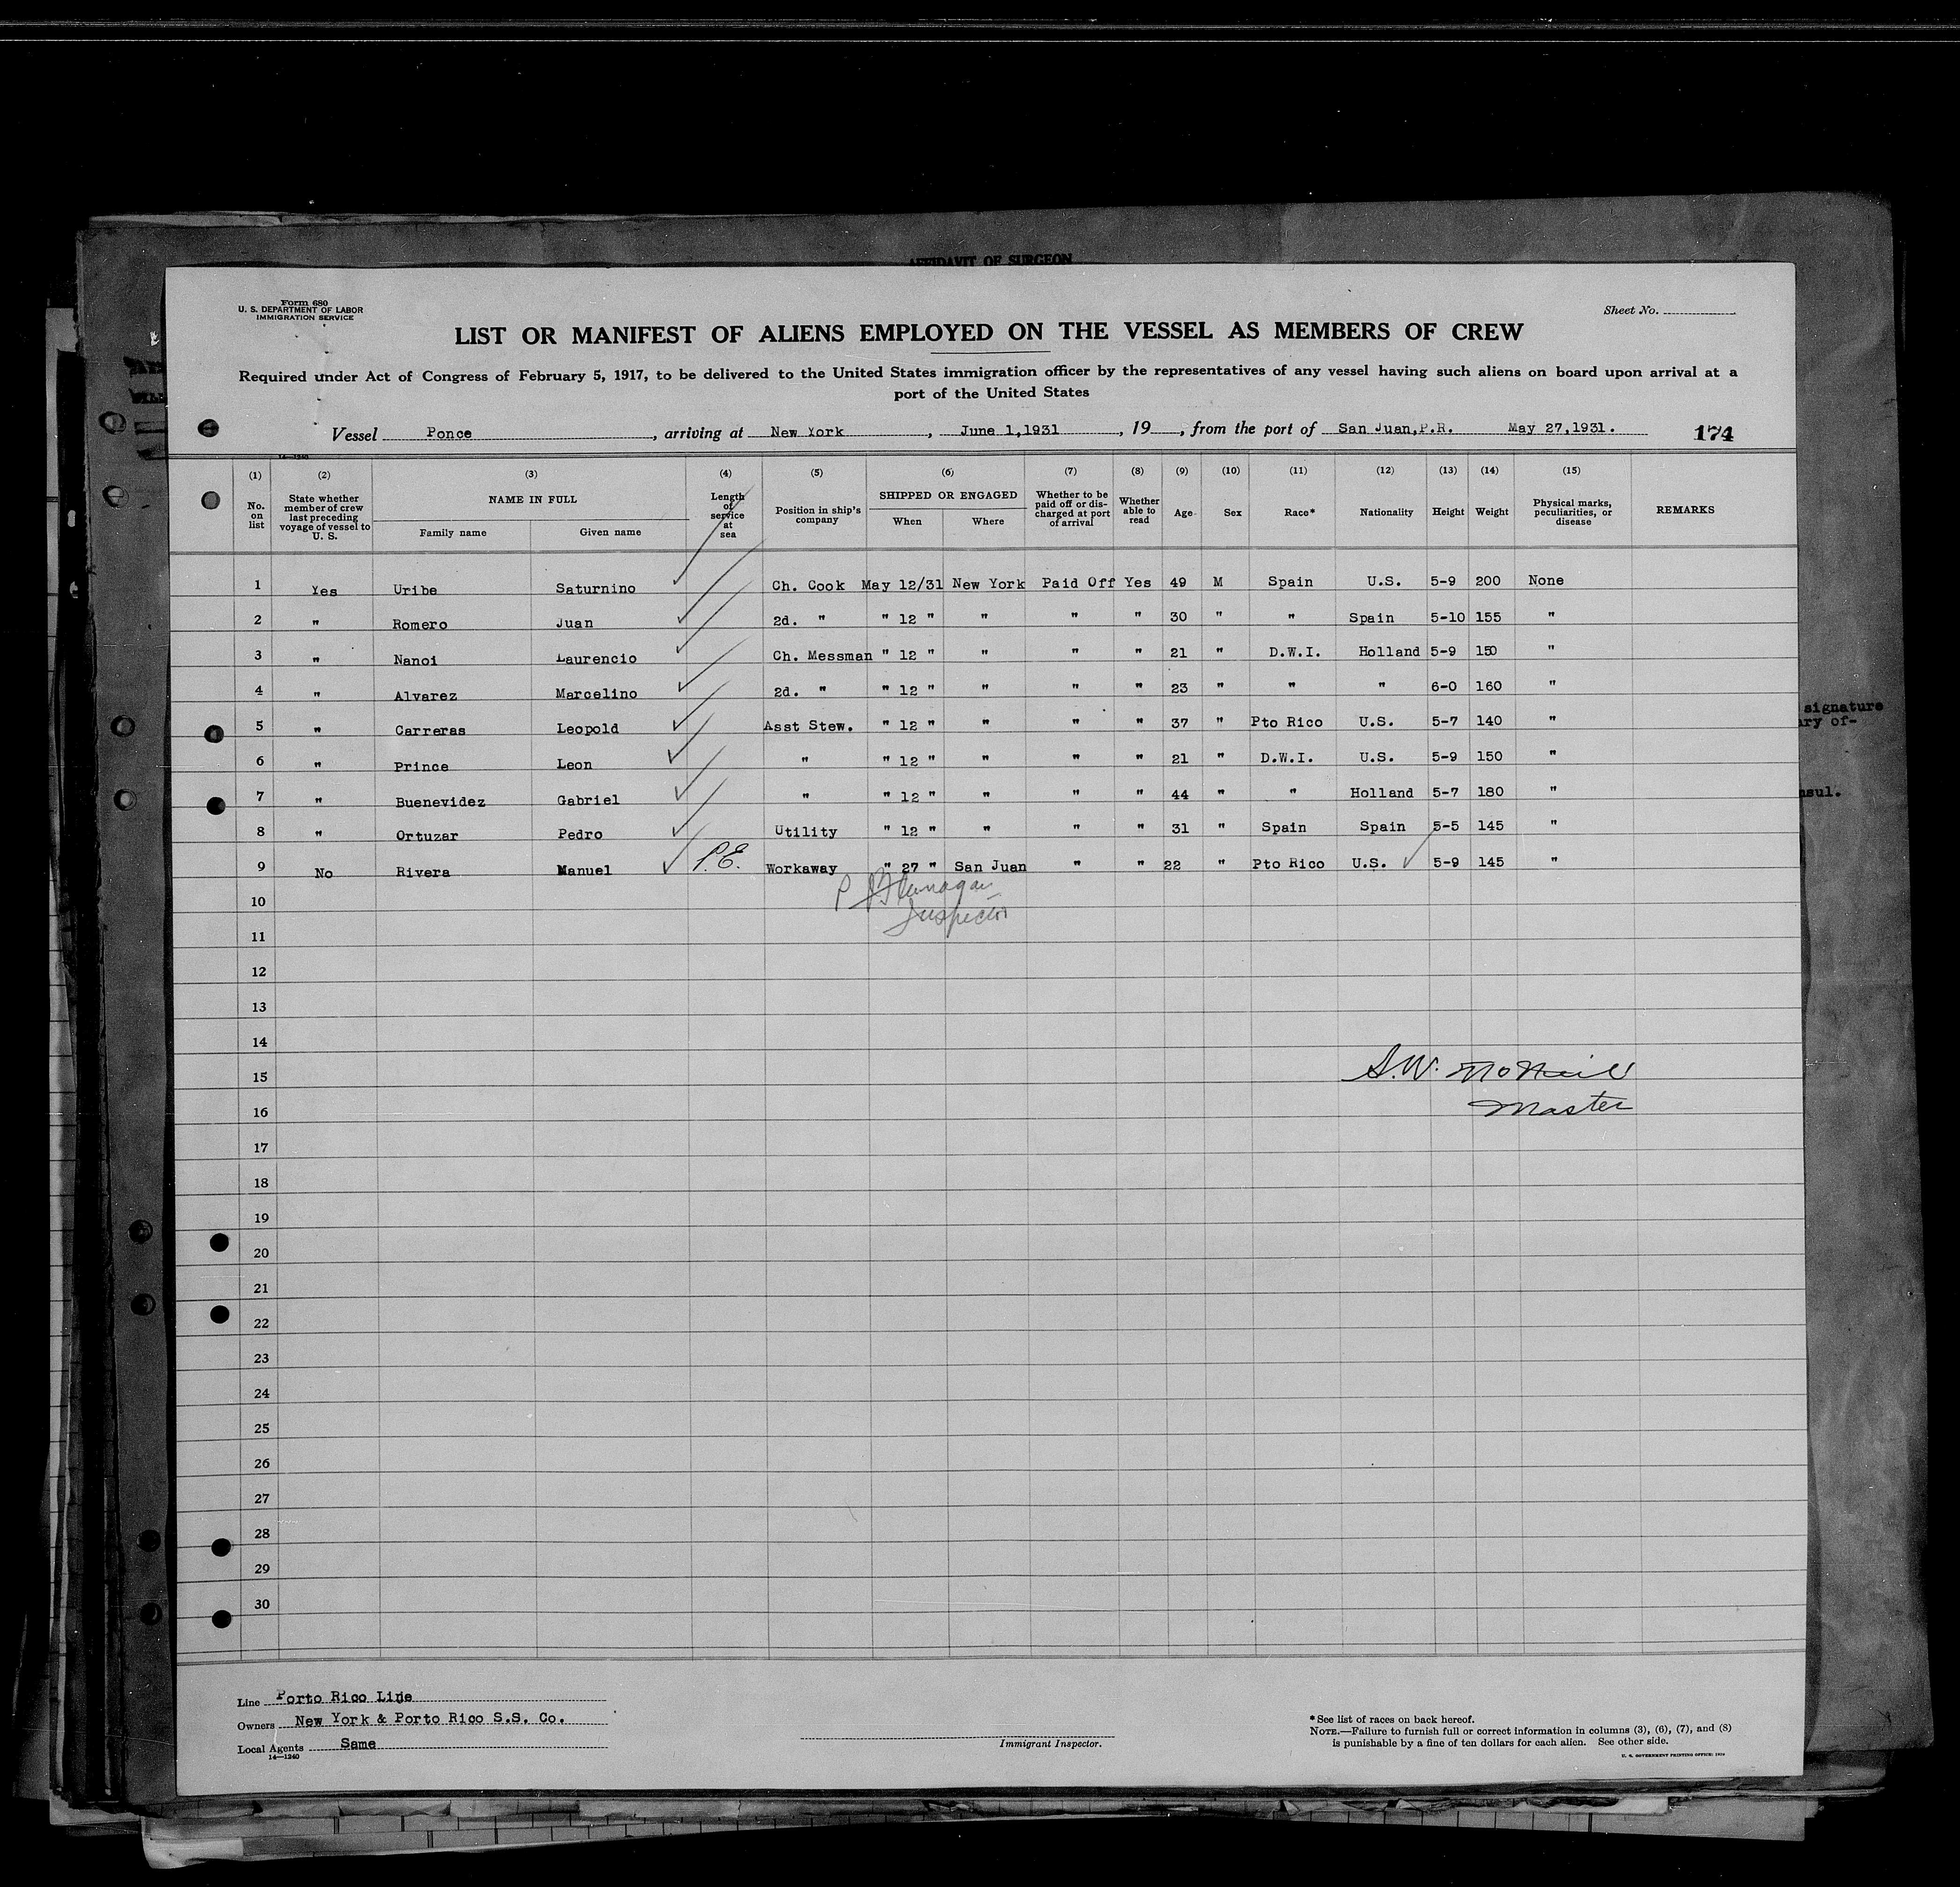 AFFIDAVIT OF SURGEON
Form 680
U. S. DEPARTMENT OF LABOR
IMMIGRATION SERVICE
Sheet No.
LIST OR MANIFEST OF ALIENS EMPLOYED ON THE VESSEL AS MEMBERS OF CREW
Required under Act of Congress of February 5, 1917, to be delivered to the United States immigration officer by the representatives of any vessel having such aliens on board upon arrival at a
port of the United States
Vessel Ponce, arriving at New York, June 1,1931, 19, from the port of San Juan,P.R. May 27,1931.
174
14—1240
(1) (2) (3) (4) (5) (6) (7) (8) (9) (10) (11) (12) (13) (14) (15)
No. on list
State whether member of crew last preceding voyage of vessel to U. S.
NAME IN FULL
Family name
Given name
Length of service at sea
Position in ship's company
SHIPPED OR ENGAGED
When
Where
Whether to be paid off or discharged at port of arrival
Whether able to read
Age
Sex
Race*
Nationality
Height
Weight
Physical marks, peculiarities, or disease
REMARKS
1 Yes Uribe Saturnino Ch. Cook May 12/31 New York Paid Off Yes 49 M Spain U.S. 5-9 200 None
2 " Romero Juan 2d. " " 12 " " " " 30 " " Spain 5-10 155 "
3 " Nanoi Laurencio Ch. Messman " 12 " " " " 21 " D.W.I. Holland 5-9 150 "
4 " Alvarez Marcelino 2d. " " 12 " " " " 23 " " " 6-0 160 "
5 " Carreras Leopold Asst Stew. " 12 " " " " 37 " Pto Rico U.S. 5-7 140 "
6 " Prince Leon " " 12 " " " " 21 " D.W.I. U.S. 5-9 150 "
7 " Buenevidez Gabriel " " 12 " " " " 44 " " Holland 5-7 180 "
8 " Ortuzar Pedro Utility " 12 " " " " 31 " Spain Spain 5-5 145 "
9 No Rivera Manuel P.E. Workaway " 27 " San Juan " " 22 " Pto Rico U.S. 5-9 145 "
10
Inspector
11
12
13
14
15
S.W. McNeil
16
Master
17
18
19
20
21
22
23
24
25
26
27
28
29
30
signature
ary of-
nsul.
Line Porto Rico Line
Owners New York & Porto Rico S.S. Co.
Local Agents Same
14—1240
Immigrant Inspector.
*See list of races on back hereof.
NOTE.—Failure to furnish full or correct information in columns (3), (6), (7), and (8)
is punishable by a fine of ten dollars for each alien. See other side.